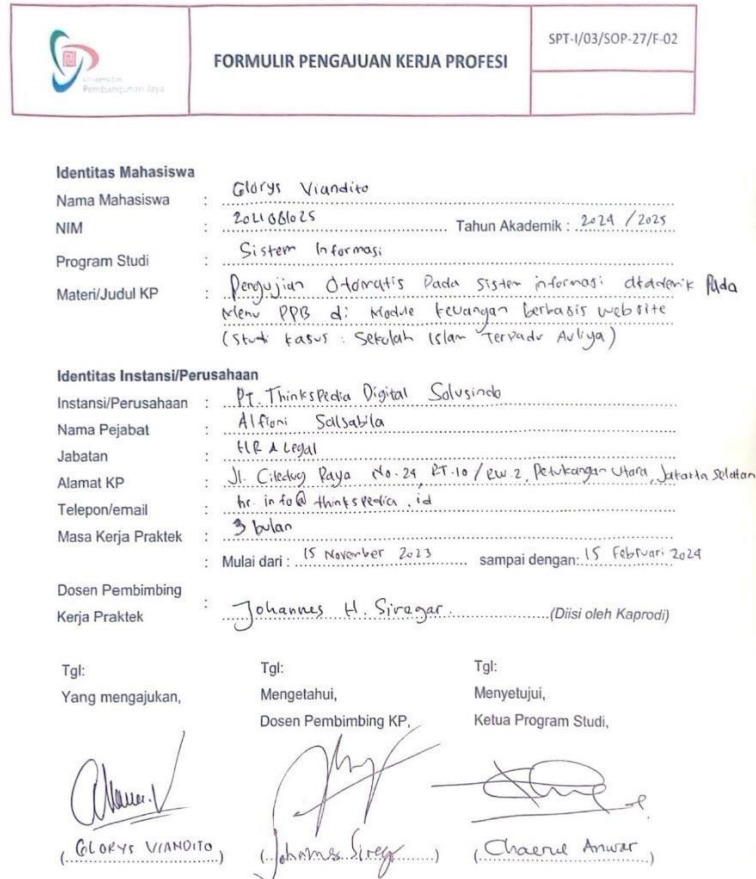 Universitas
Pembangunan Jaya
FORMULIR PENGAJUAN KERJA PROFESI
SPT-I/03/SOP-27/F-02
Identitas Mahasiswa
Nama Mahasiswa : Glorys Viandito
NIM : 2021081025 Tahun Akademik : 2024 / 2025
Program Studi : Sistem Informasi
Materi/Judul KP : Pengujian Otomatis Pada Sistem informasi Akademik Pada
Menu PPB di Module keuangan berbasis website
(Studi kasus : Sekolah Islam Terpadu Auliya)
Identitas Instansi/Perusahaan
Instansi/Perusahaan : PT. ThinksPedia Digital Solusindo
Nama Pejabat : Alfioni Salsabila
Jabatan : HR & Legal
Alamat KP : Jl. Ciledug Raya No.24 RT.10 / RW.2, Petukangan Utara, Jakarta Selatan
Telepon/email : hr.info@thinkspedia.id
Masa Kerja Praktek : 3 bulan
: Mulai dari : 15 November 2023 sampai dengan: 15 Februari 2024
Dosen Pembimbing
Kerja Praktek : Johannes H. Siregar. (Diisi oleh Kaprodi)
Tgl: Tgl: Tgl:
Yang mengajukan, Mengetahui, Menyetujui,
Dosen Pembimbing KP, Ketua Program Studi,
(GLORYS VIANDITO) (Johannes Siregar) (Chaerul Anwar)